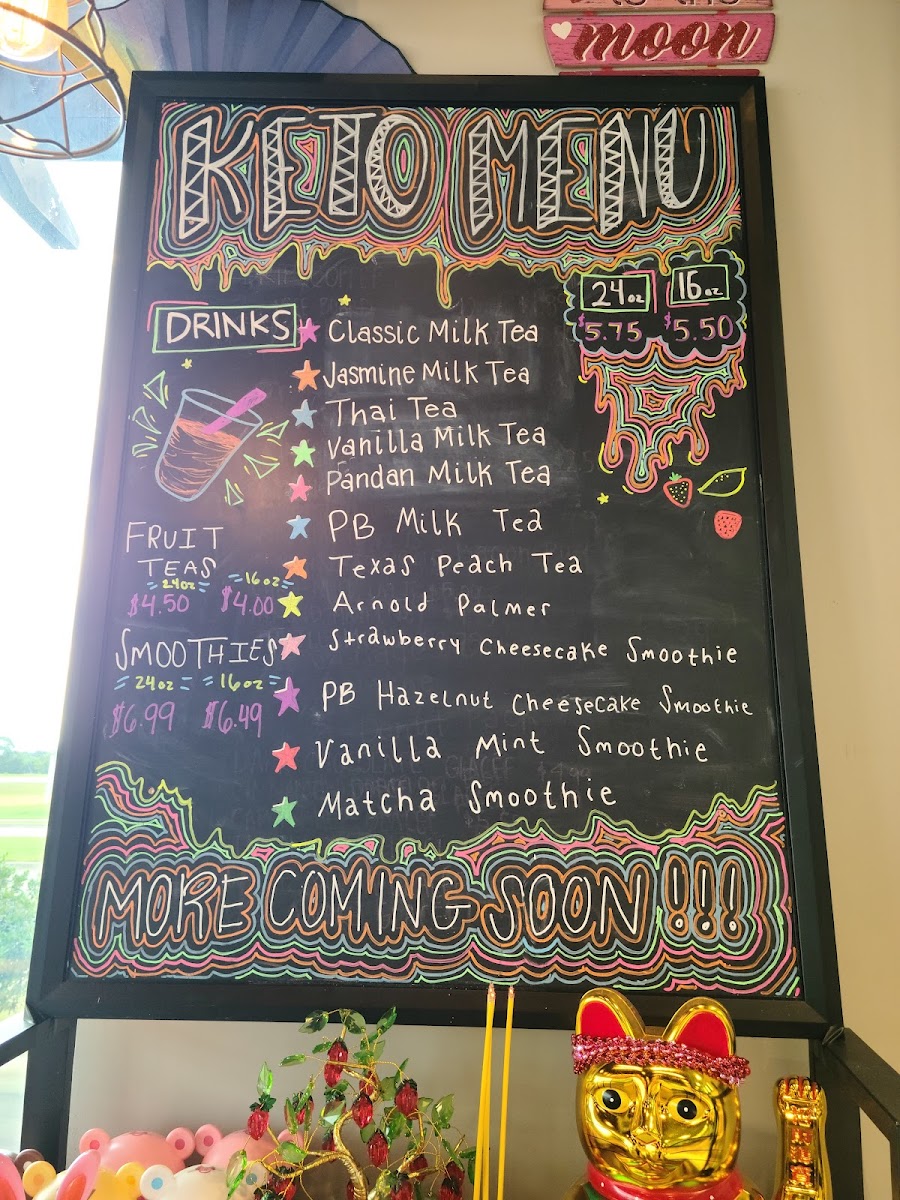 moon
KETO MENU
24oz 16oz
$5.75 $5.50
DRINKS
Classic Milk Tea
Jasmine Milk Tea
Thai Tea
Vanilla Milk Tea
Pandan Milk Tea
PB Milk Tea
Texas Peach Tea
Arnold Palmer
Strawberry Cheesecake Smoothie
PB Hazelnut Cheesecake Smoothie
Vanilla Mint Smoothie
Matcha Smoothie
FRUIT
TEAS
24oz 16oz
$4.50 $4.00
SMOOTHIES
24oz 16oz
$6.99 $6.49
MORE COMING SOON !!!